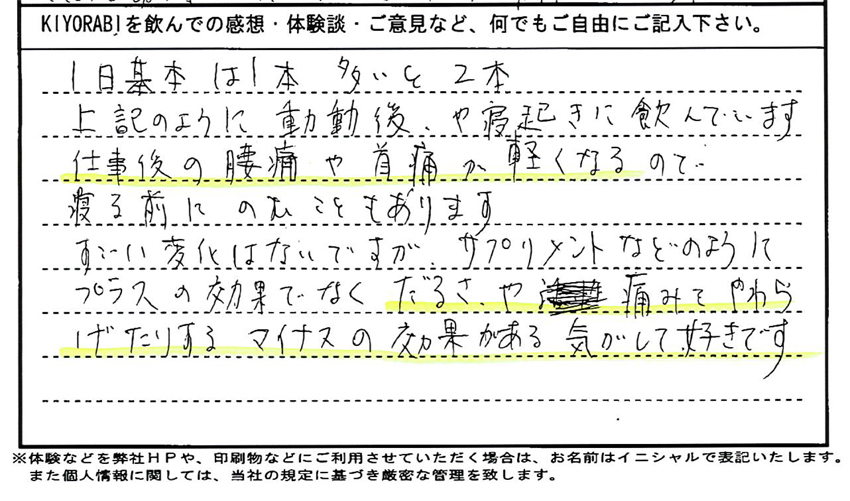 KIYORABIを飲んでの感想・体験談・ご意見など、何でもご自由にご記入下さい。
1日基本は1本 多いと2本
上記のように動動後、や寝起きに飲んでいます
仕事後の腰痛や首痛が軽くなるので
寝る前にのむこともあります
すごい変化はないですが、サプリメントなどのように
プラスの効果でなくだるさ、や 痛みをやわら
げたりするマイナスの効果がある気がして好きです
※体験などを弊社HPや、印刷物などにご利用させていただく場合は、お名前はイニシャルで表記いたします。
また個人情報に関しては、当社の規定に基づき厳密な管理を致します。